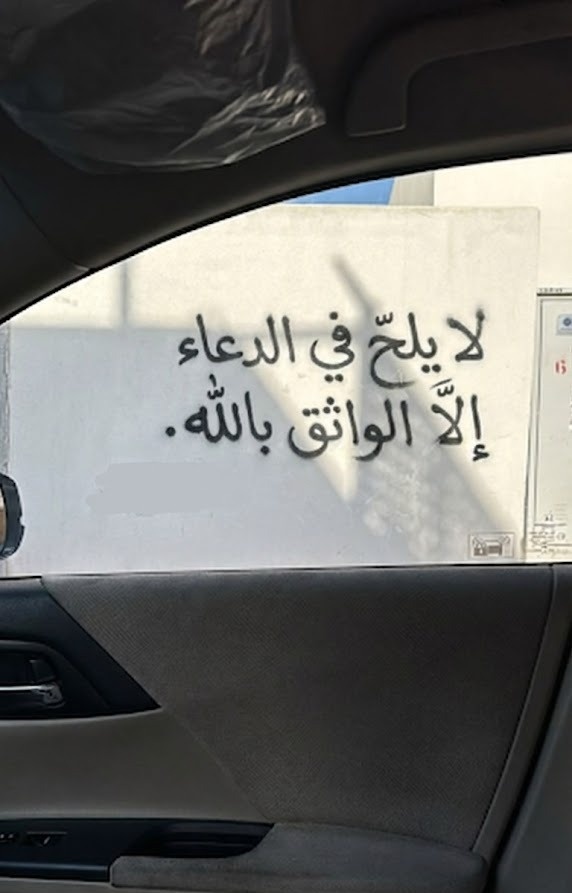 لا يلحّ في الدعاء
إلَّا الواثق بالله.